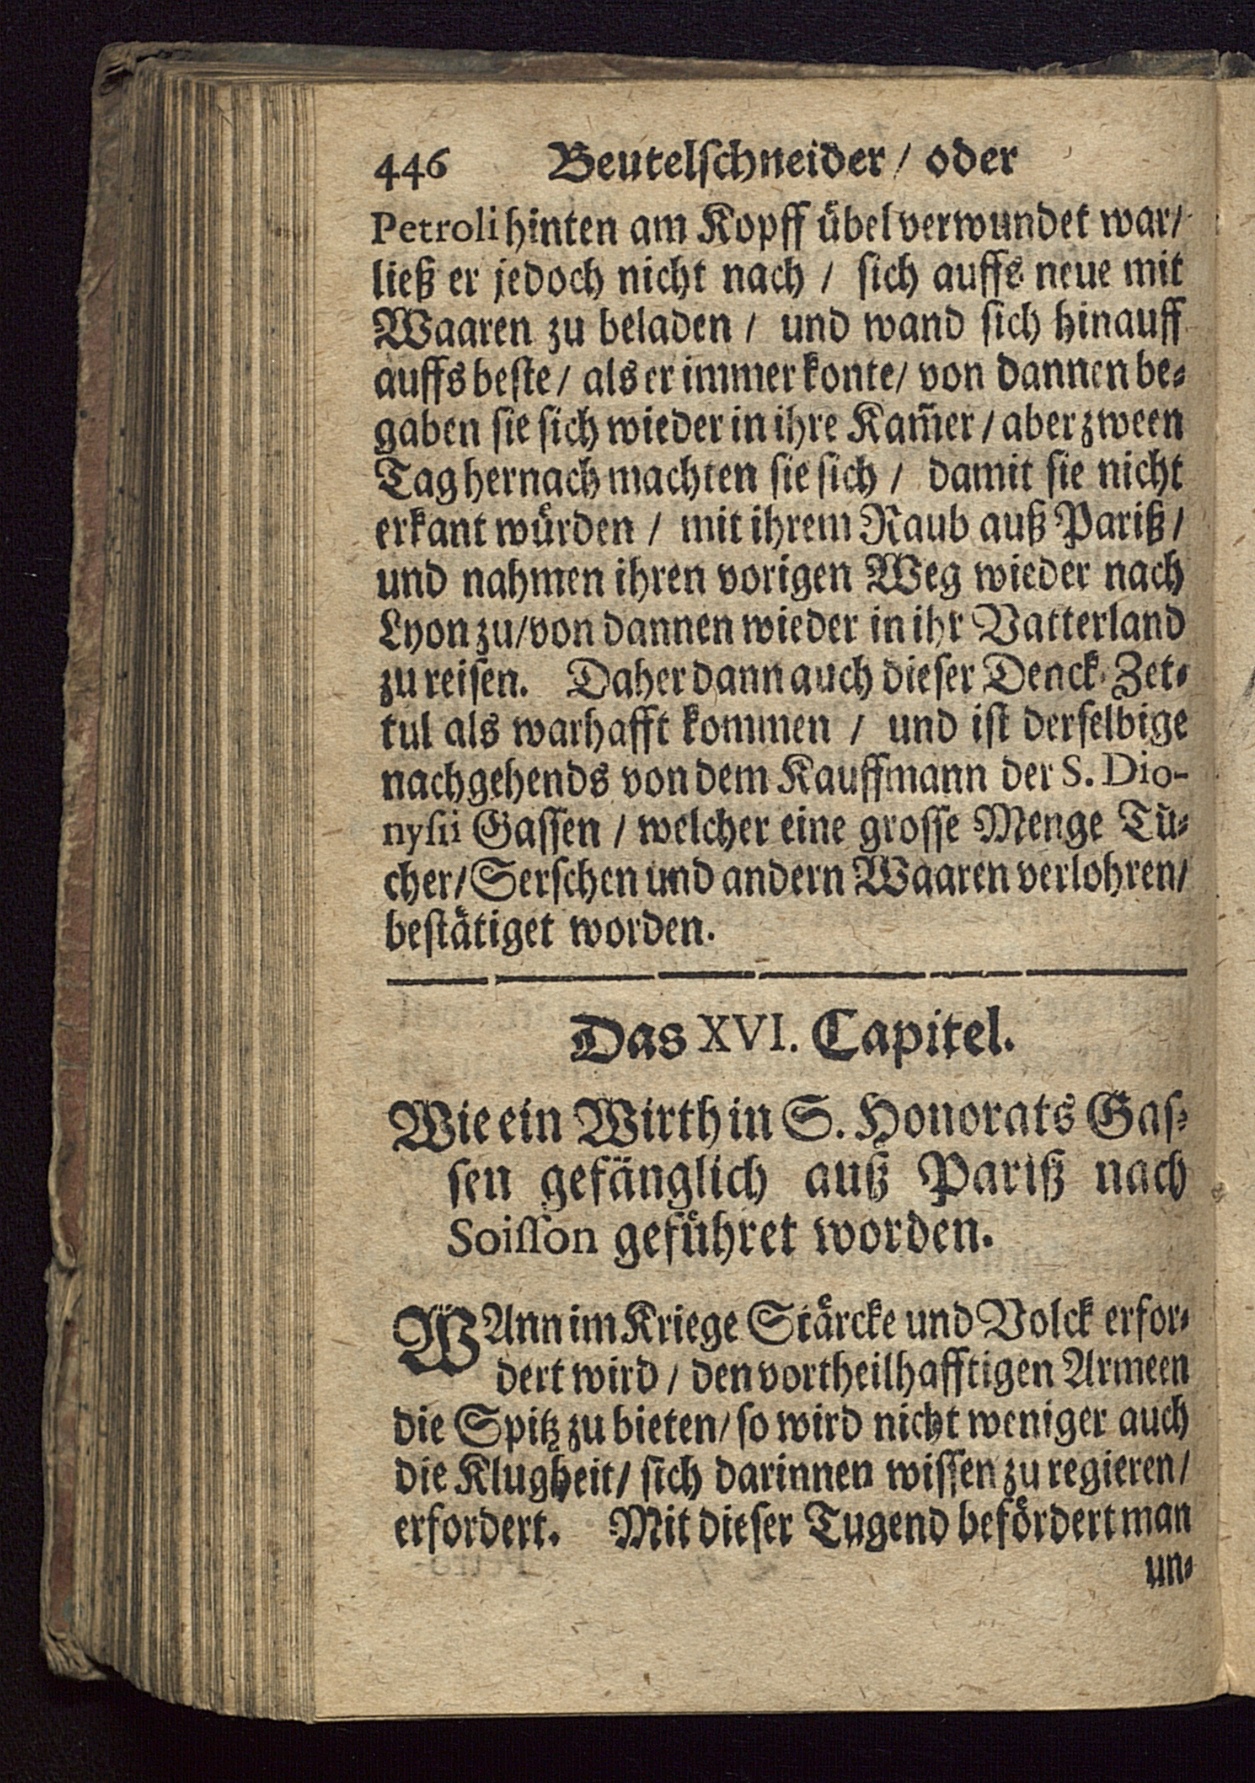 446 Beutelschneider / oder
Petroli hinten am Kopff übel verwundet war /
ließ er jedoch nicht nach / sich auffs neue mit
Waaren zu beladen / und wand sich hinauff
auffs beste / als er immer konte / von dannen be-
gaben sie sich wieder in ihre Kam̃er / aber zween
Tag hernach machten sie sich / damit sie nicht
erkant würden / mit ihrem Raub auß Pariß /
und nahmen ihren vorigen Weg wieder nach
Lyon zu / von dannen wieder in ihr Vatterland
zu reisen. Daher dann auch dieser Denck-Zet-
tul als warhafft kommen / und ist derselbige
nachgehends von dem Kauffmann der S. Dio-
nysii Gassen / welcher eine grosse Menge Tü-
cher / Serschen und andern Waaren verlohren /
bestätiget worden.
Das XVI. Capitel.
Wie ein Wirth in S. Honorats Gas-
sen gefänglich auß Pariß nach
Soisson geführet worden.
WAnn im Kriege Stärcke und Volck erfor-
dert wird / den vortheilhafftigen Armeen
die Spitz zu bieten / so wird nicht weniger auch
die Klugheit / sich darinnen wissen zu regieren /
erfordert. Mit dieser Tugend befördert man
un-